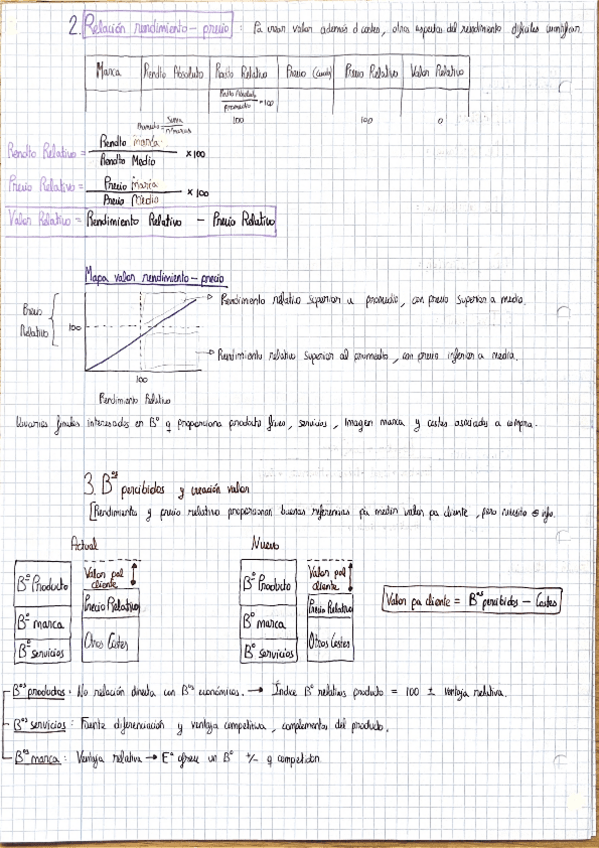 2. Relación rendimiento - precio : Pa crear valor además d costes, otros aspectos del rendimiento difíciles cuantificar.
Marca Rendto Absoluto Rendto Relativo Precio (cantd) Precio Relativo Valor Relativo
Rendto Absoluto / promedio × 100
Promedio = Suma / nº marcas 100 100 0
Rendto Relativo = Rendto marca / Rendto Medio × 100
Precio Relativo = Precio marca / Precio Medio × 100
Valor Relativo = Rendimiento Relativo - Precio Relativo
Mapa valor rendimiento - precio
Precio Relativo
100
Rendimiento relativo superior a promedio, con precio superior a medio.
Rendimiento relativo superior al promedio, con precio inferior a media.
100
Rendimiento Relativo
Usuarios finales interesados en Bº q proporciona producto físico, servicios, imagen marca y costes asociados a compra.
3. Bºs percibidos y creación valor
[Rendimiento y precio relativo proporcionan buenas referencias pa medir valor pa cliente, pero necesito info.
Actual Nuevo
Bº Producto Valor pal cliente Bº Producto Valor pal cliente
Precio Relativo Precio Relativo
Bº marca Bº marca
Otros Costes Otros Costes
Bº servicios Bº servicios
Valor pa cliente = Bºs percibidos - Costes
Bºs productos : No relación directa con Bºs económicos. → Índice Bº relativos producto = 100 ± Ventaja relativa.
Bºs servicios : Fuente diferenciación y ventaja competitiva, complementos del producto.
Bºs marca : Ventaja relativa → Eª ofrece un Bº +/- q competidor.